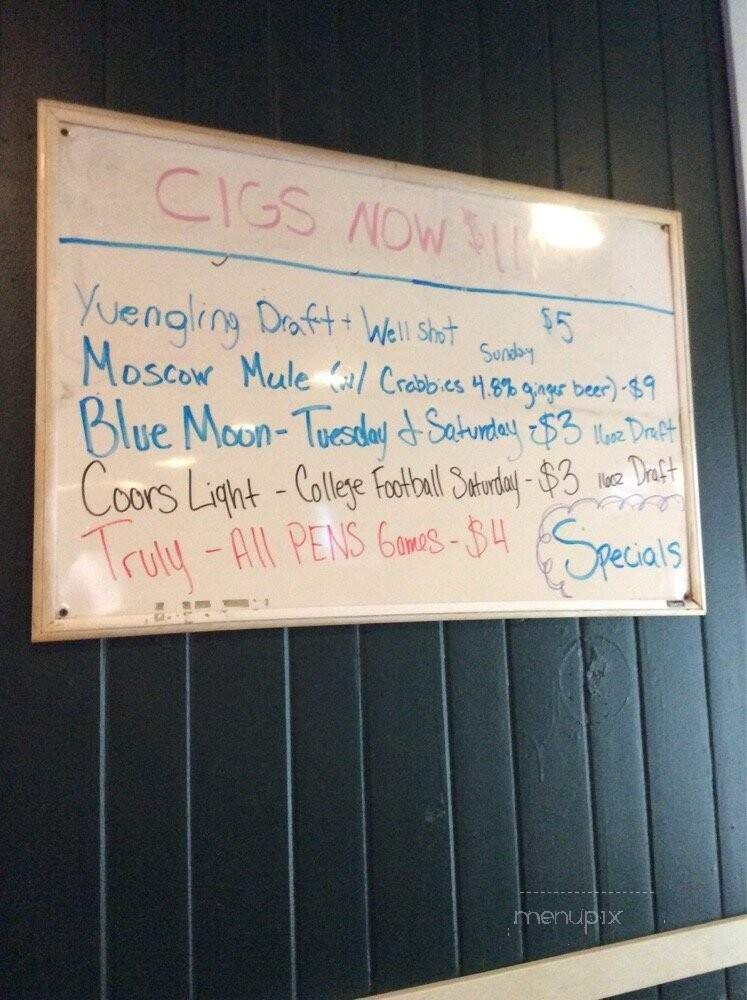 CIGS NOW $11
Yuengling Draft + Well shot $5
Sunday
Moscow Mule (w/ Crabbies 4.8% ginger beer) - $9
Blue Moon - Tuesday & Saturday - $3 16oz Draft
Coors Light - College Football Saturday - $3 16oz Draft
Truly - All PENS Games - $4
Specials
menupix